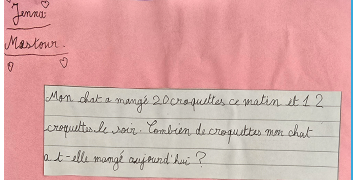 Jenna
Mastour.
Mon chat a mangé 20 croquettes ce matin et 12
croquettes le soir. Combien de croquettes mon chat
a t-elle mangé aujourd'hui ?